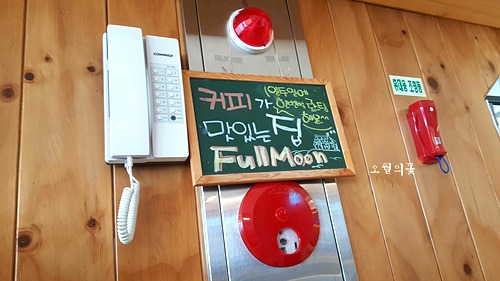 COMMAX
커피가
맛있는 집
FullMoon
휴대용 조명등
오월의꽃